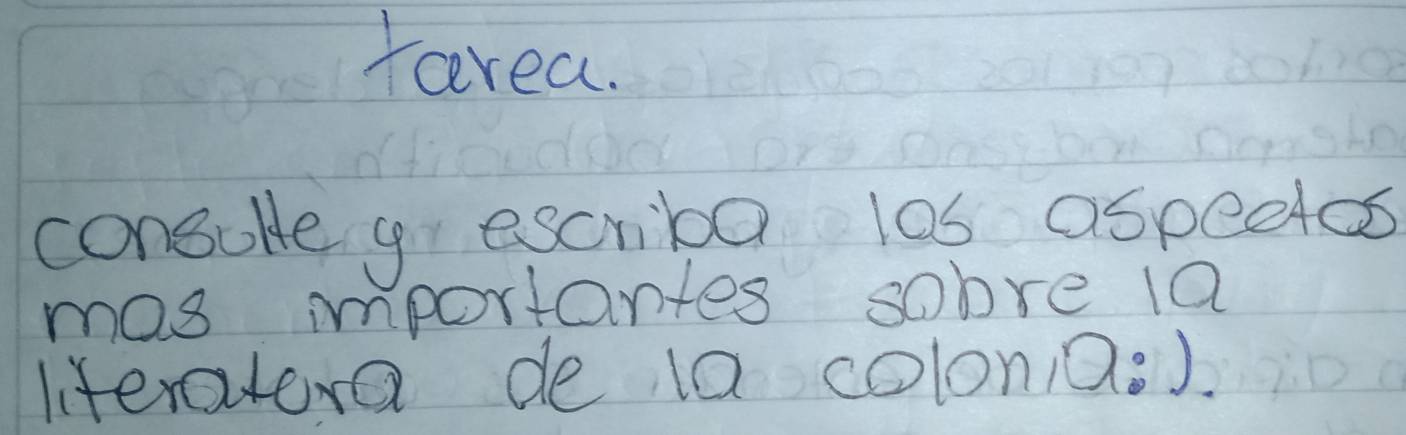 tarea.
consulte y escriba los aspectos
mas importantes sobre la
literatura de la colonia:).